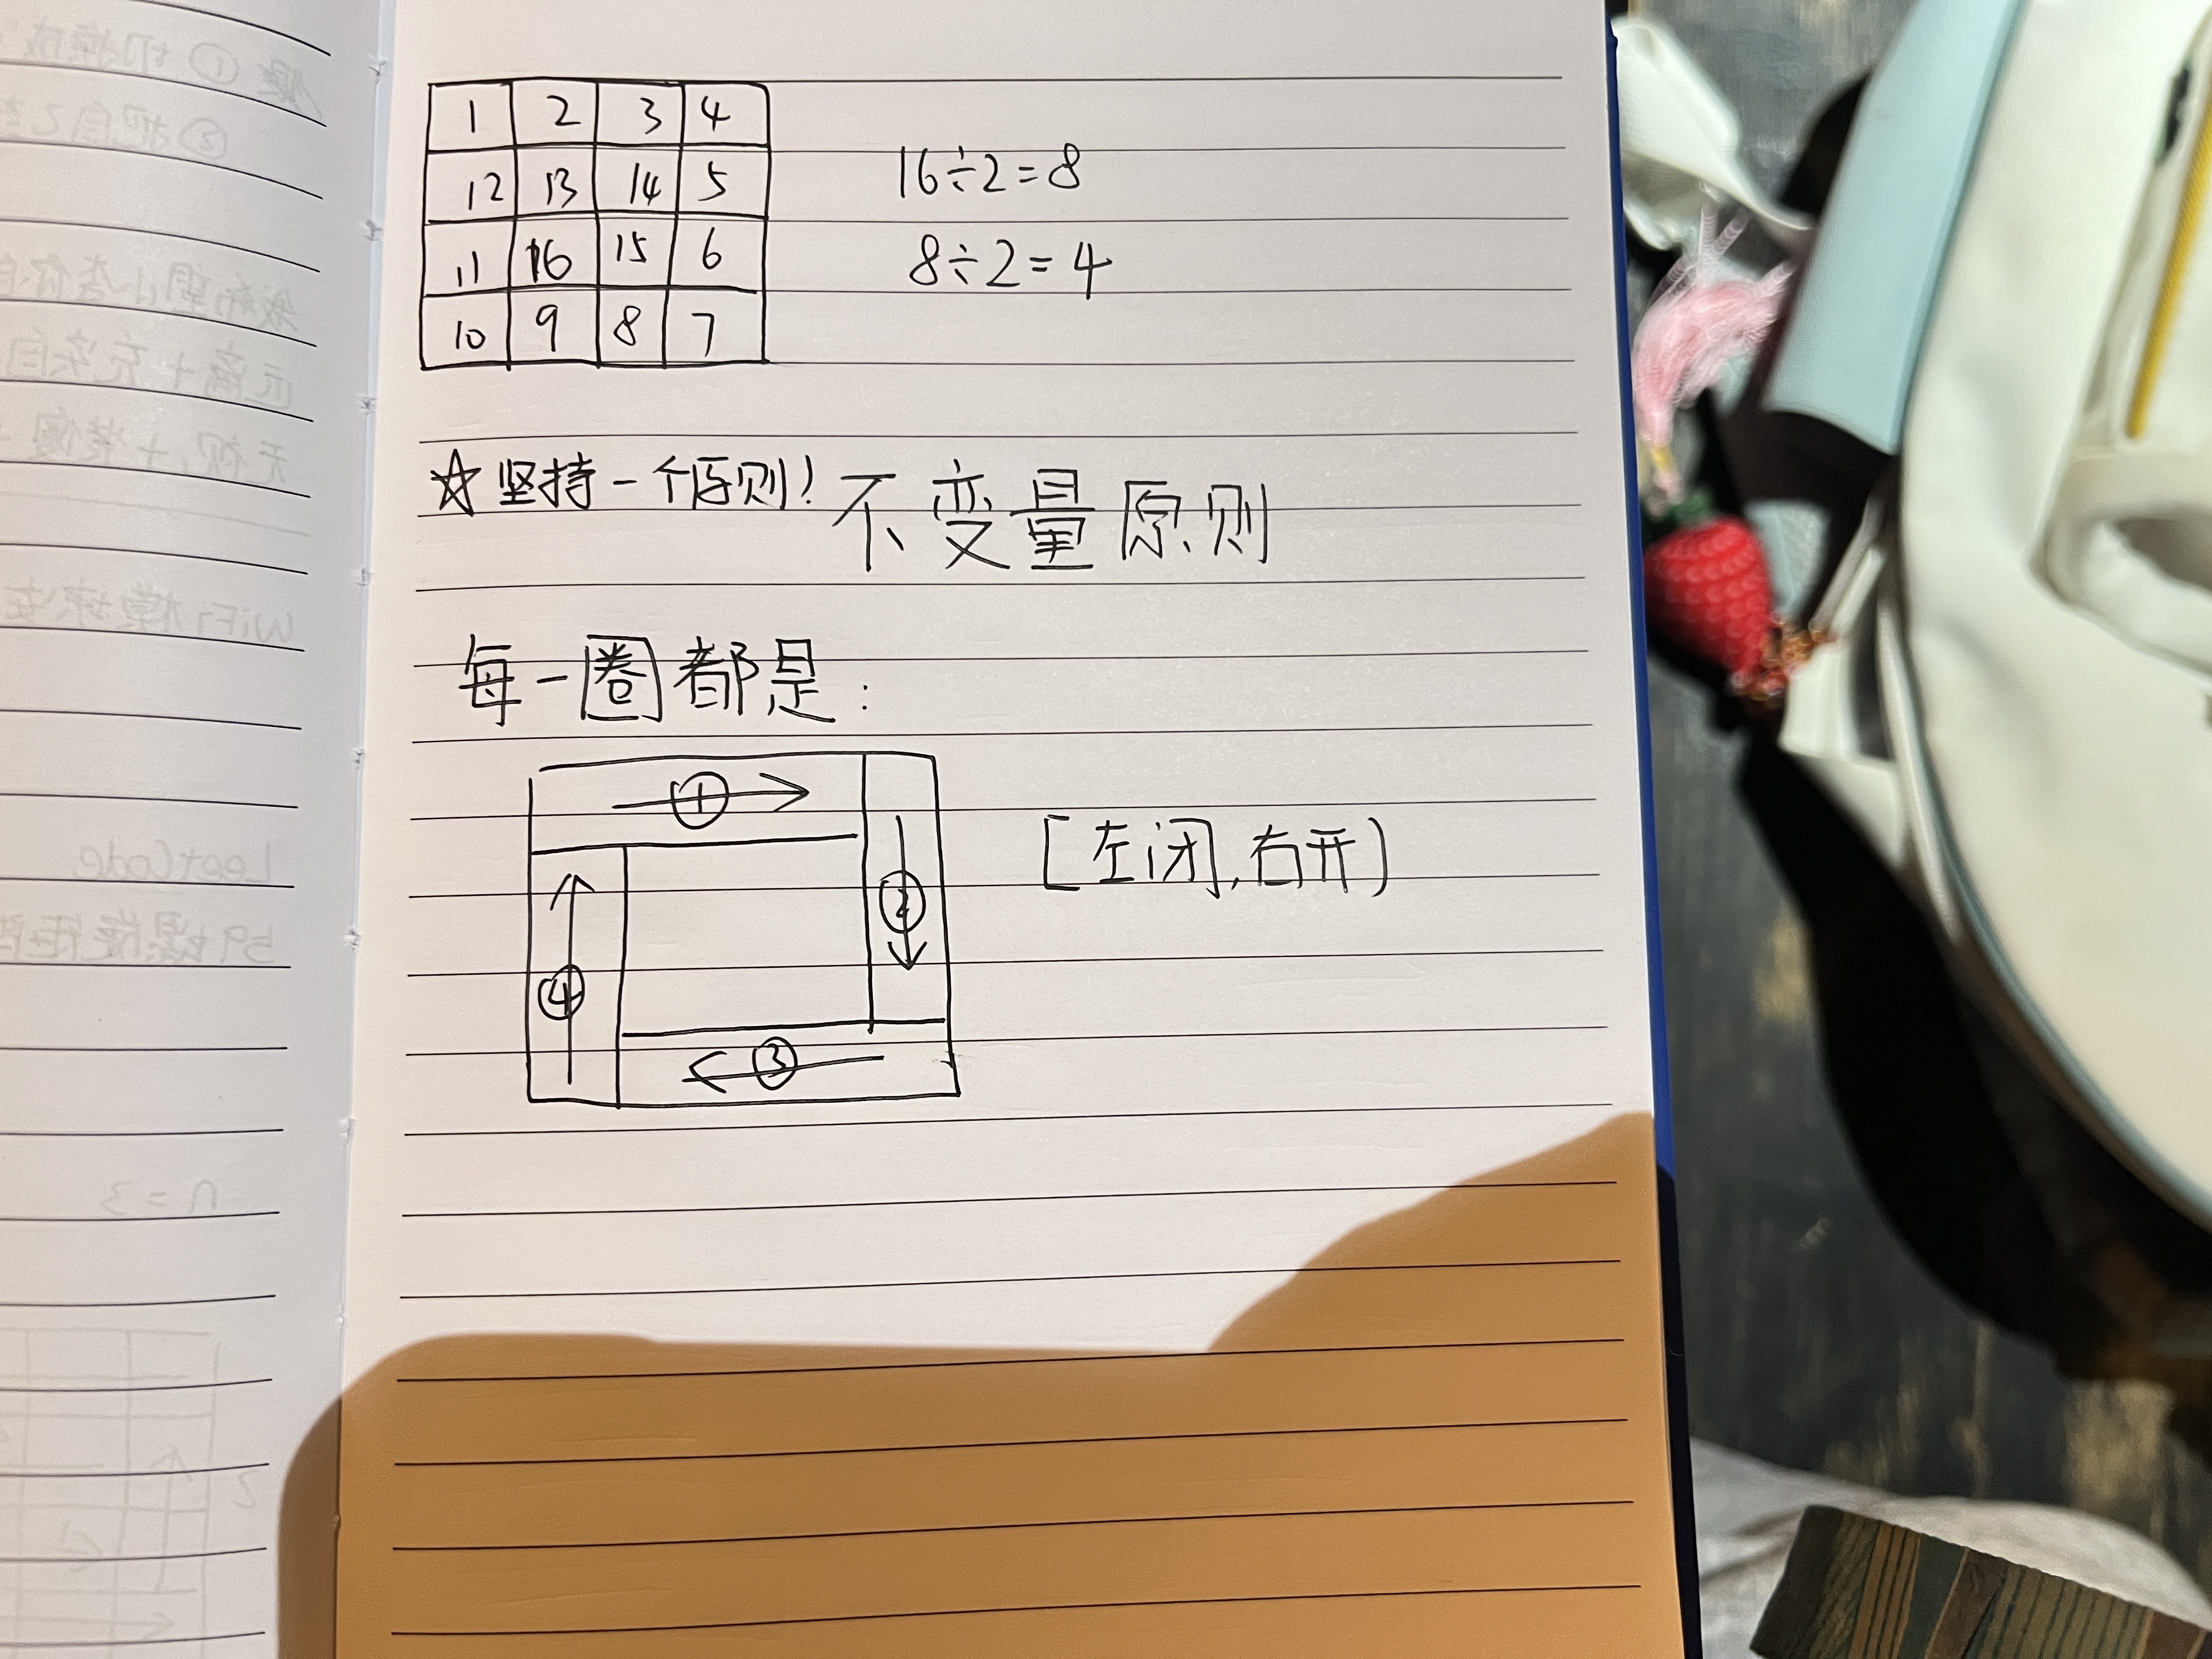 1 2 3 4
12 13 14 5
11 16 15 6
10 9 8 7
16÷2=8
8÷2=4
☆坚持一个原则! 不变量原则
每一圈都是:
①
②
③
④
[左闭,右开)